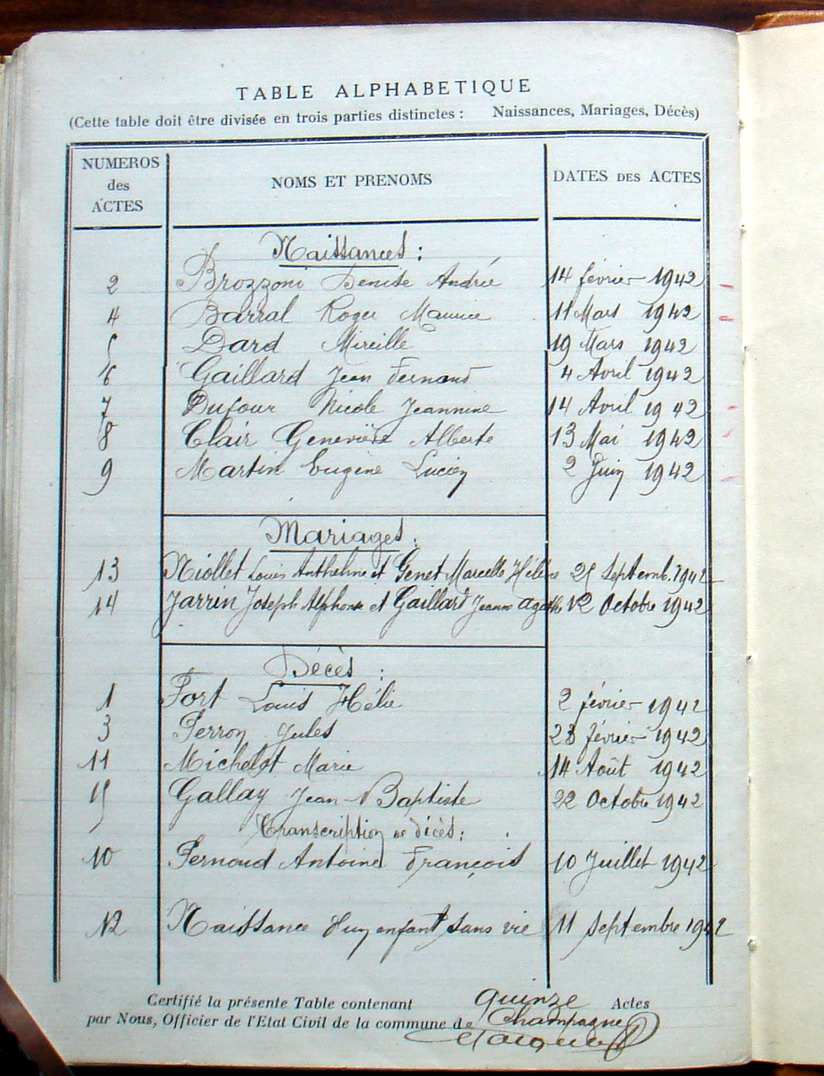 TABLE ALPHABETIQUE
(Cette table doit être divisée en trois parties distinctes : Naissances, Mariages, Décès)
NUMEROS des ACTES NOMS ET PRENOMS DATES DES ACTES
Naissances :
2 Brozzoni Denise Andrée 14 février 1942
4 Barral Roger Maurice 11 Mars 1942
5 Dard Mireille 19 Mars 1942
6 Gaillard Jean Fernand 4 Avril 1942
7 Dufour Nicole Jeannine 14 Avril 1942
8 Clair Geneviève Alberte 13 Mai 1942
9 Martin Eugène Lucien 2 Juin 1942
Mariages :
13 Niollet Louis Anthelme et Genet Marcelle Hélène Septemb. 1942
14 Jarrin Joseph Alphonse et Gaillard Jeanne Agath 12 Octobre 1942
Décès :
1 Fort Louis Hélie 2 février 1942
3 Perron Jules 23 février 1942
11 Michelot Marie 14 Août 1942
15 Gallay Jean-Baptiste 22 Octobre 1942
Transcription de décès :
10 Pernoud Antoine François 10 Juillet 1942
12 Naissance d'un enfant sans vie 11 septembre 1942
Certifié la présente Table contenant quinze Actes
par Nous, Officier de l'Etat Civil de la commune de Champagne